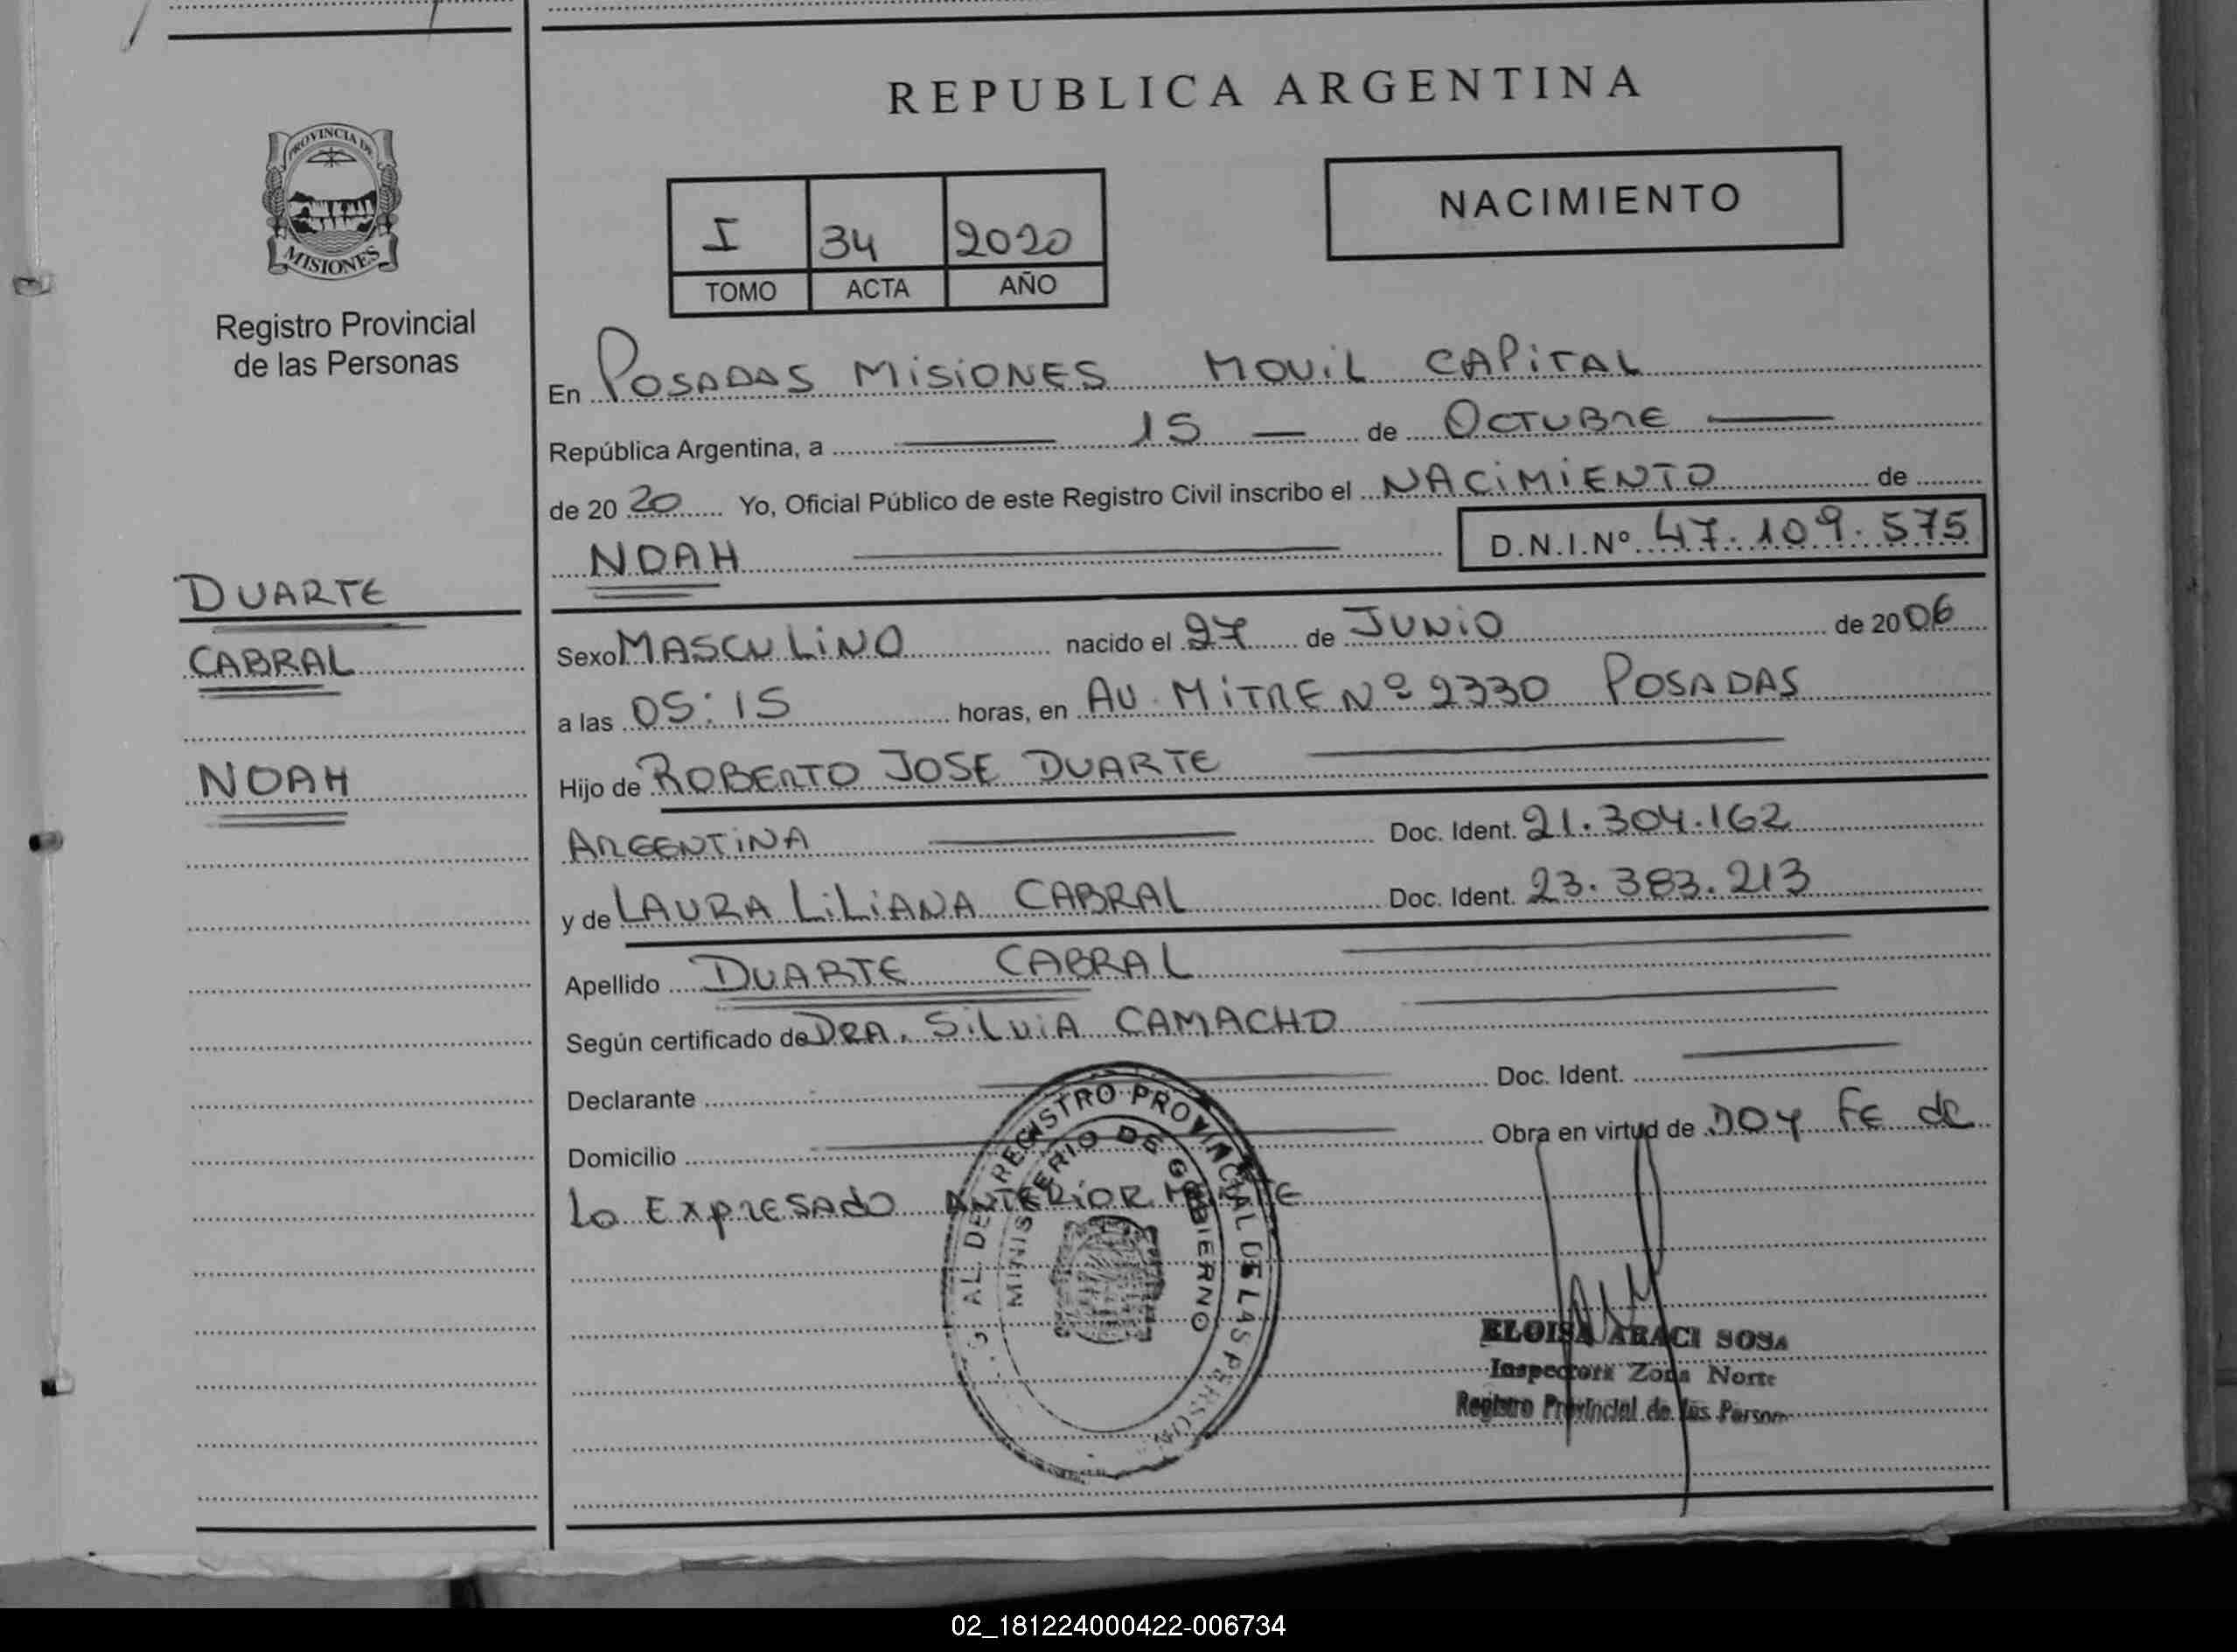 REPUBLICA ARGENTINA
PROVINCIA DE
MISIONES
Registro Provincial
de las Personas
I 34 2020
TOMO ACTA AÑO
NACIMIENTO
En POSADAS MISIONES MOVIL CAPITAL
República Argentina, a 15 de OCTUBRE
de 20 20 Yo, Oficial Público de este Registro Civil inscribo el NACIMIENTO de
NOAH D.N.I.Nº 47.109.575
DUARTE
CABRAL
NOAH
Sexo MASCULINO nacido el 27 de JUNIO de 20 06
a las 05:15 horas, en AV. MITRE Nº 2330 POSADAS
Hijo de ROBERTO JOSE DUARTE
ARGENTINA Doc. Ident. 21.304.162
y de LAURA LILIANA CABRAL Doc. Ident. 23.383.213
Apellido DUARTE CABRAL
Según certificado de DRA. SILVIA CAMACHO
Declarante Doc. Ident.
Domicilio Obra en virtud de DOY FE de
Lo EXPRESADO ANTERIORMENTE
REGISTRO PROVINCIAL DE LAS PERSONAS
MINISTERIO DE GOBIERNO
ELOISA ARACI SOSA
Inspectora Zona Norte
Registro Provincial de las Person
02_181224000422-006734